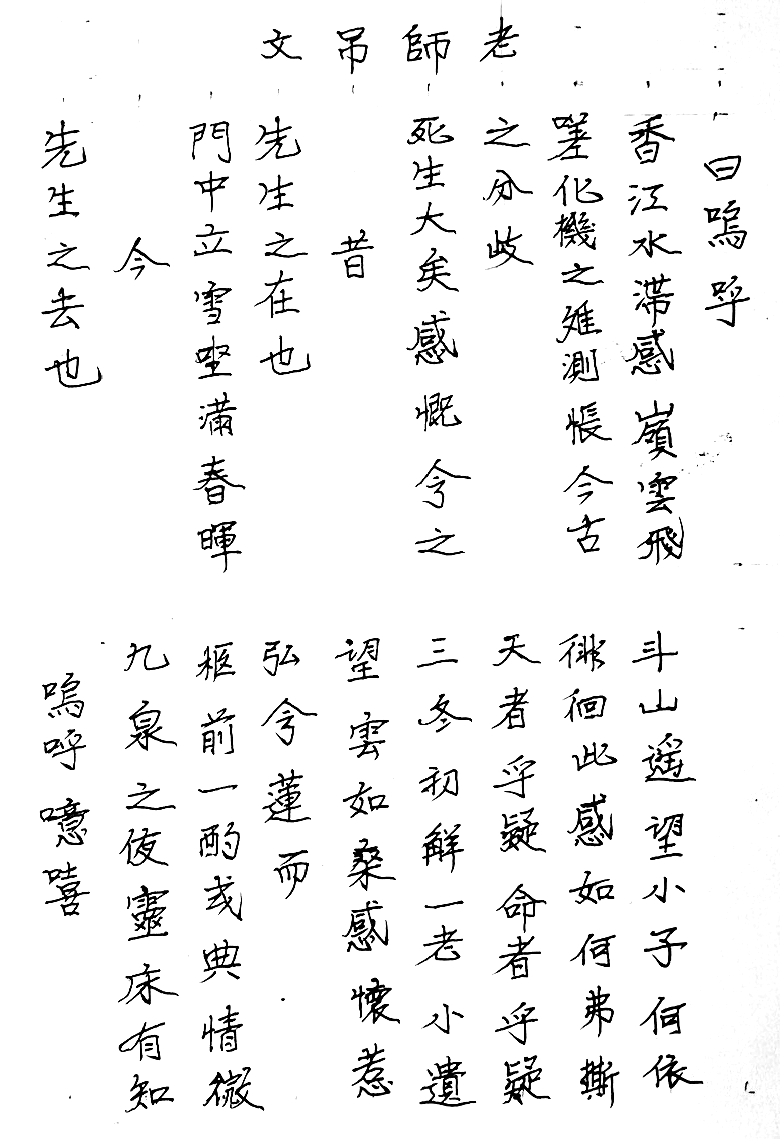 老師吊文
曰嗚呼
香江水滯感嶺雲飛
嗟化機之难測悵今古
之分歧
死生大矣感慨兮之
昔
先生之在也
門中立雪坐满春暉
今
先生之去也
斗山遥望小子何依
徘徊此感如何弗撕
天者乎疑命者乎疑
三冬初鮮一老小遺
望雲如桑感懷惹
弘兮蓮而
柩前一酌或典情微
九泉之夜靈床有知
嗚呼噫嘻